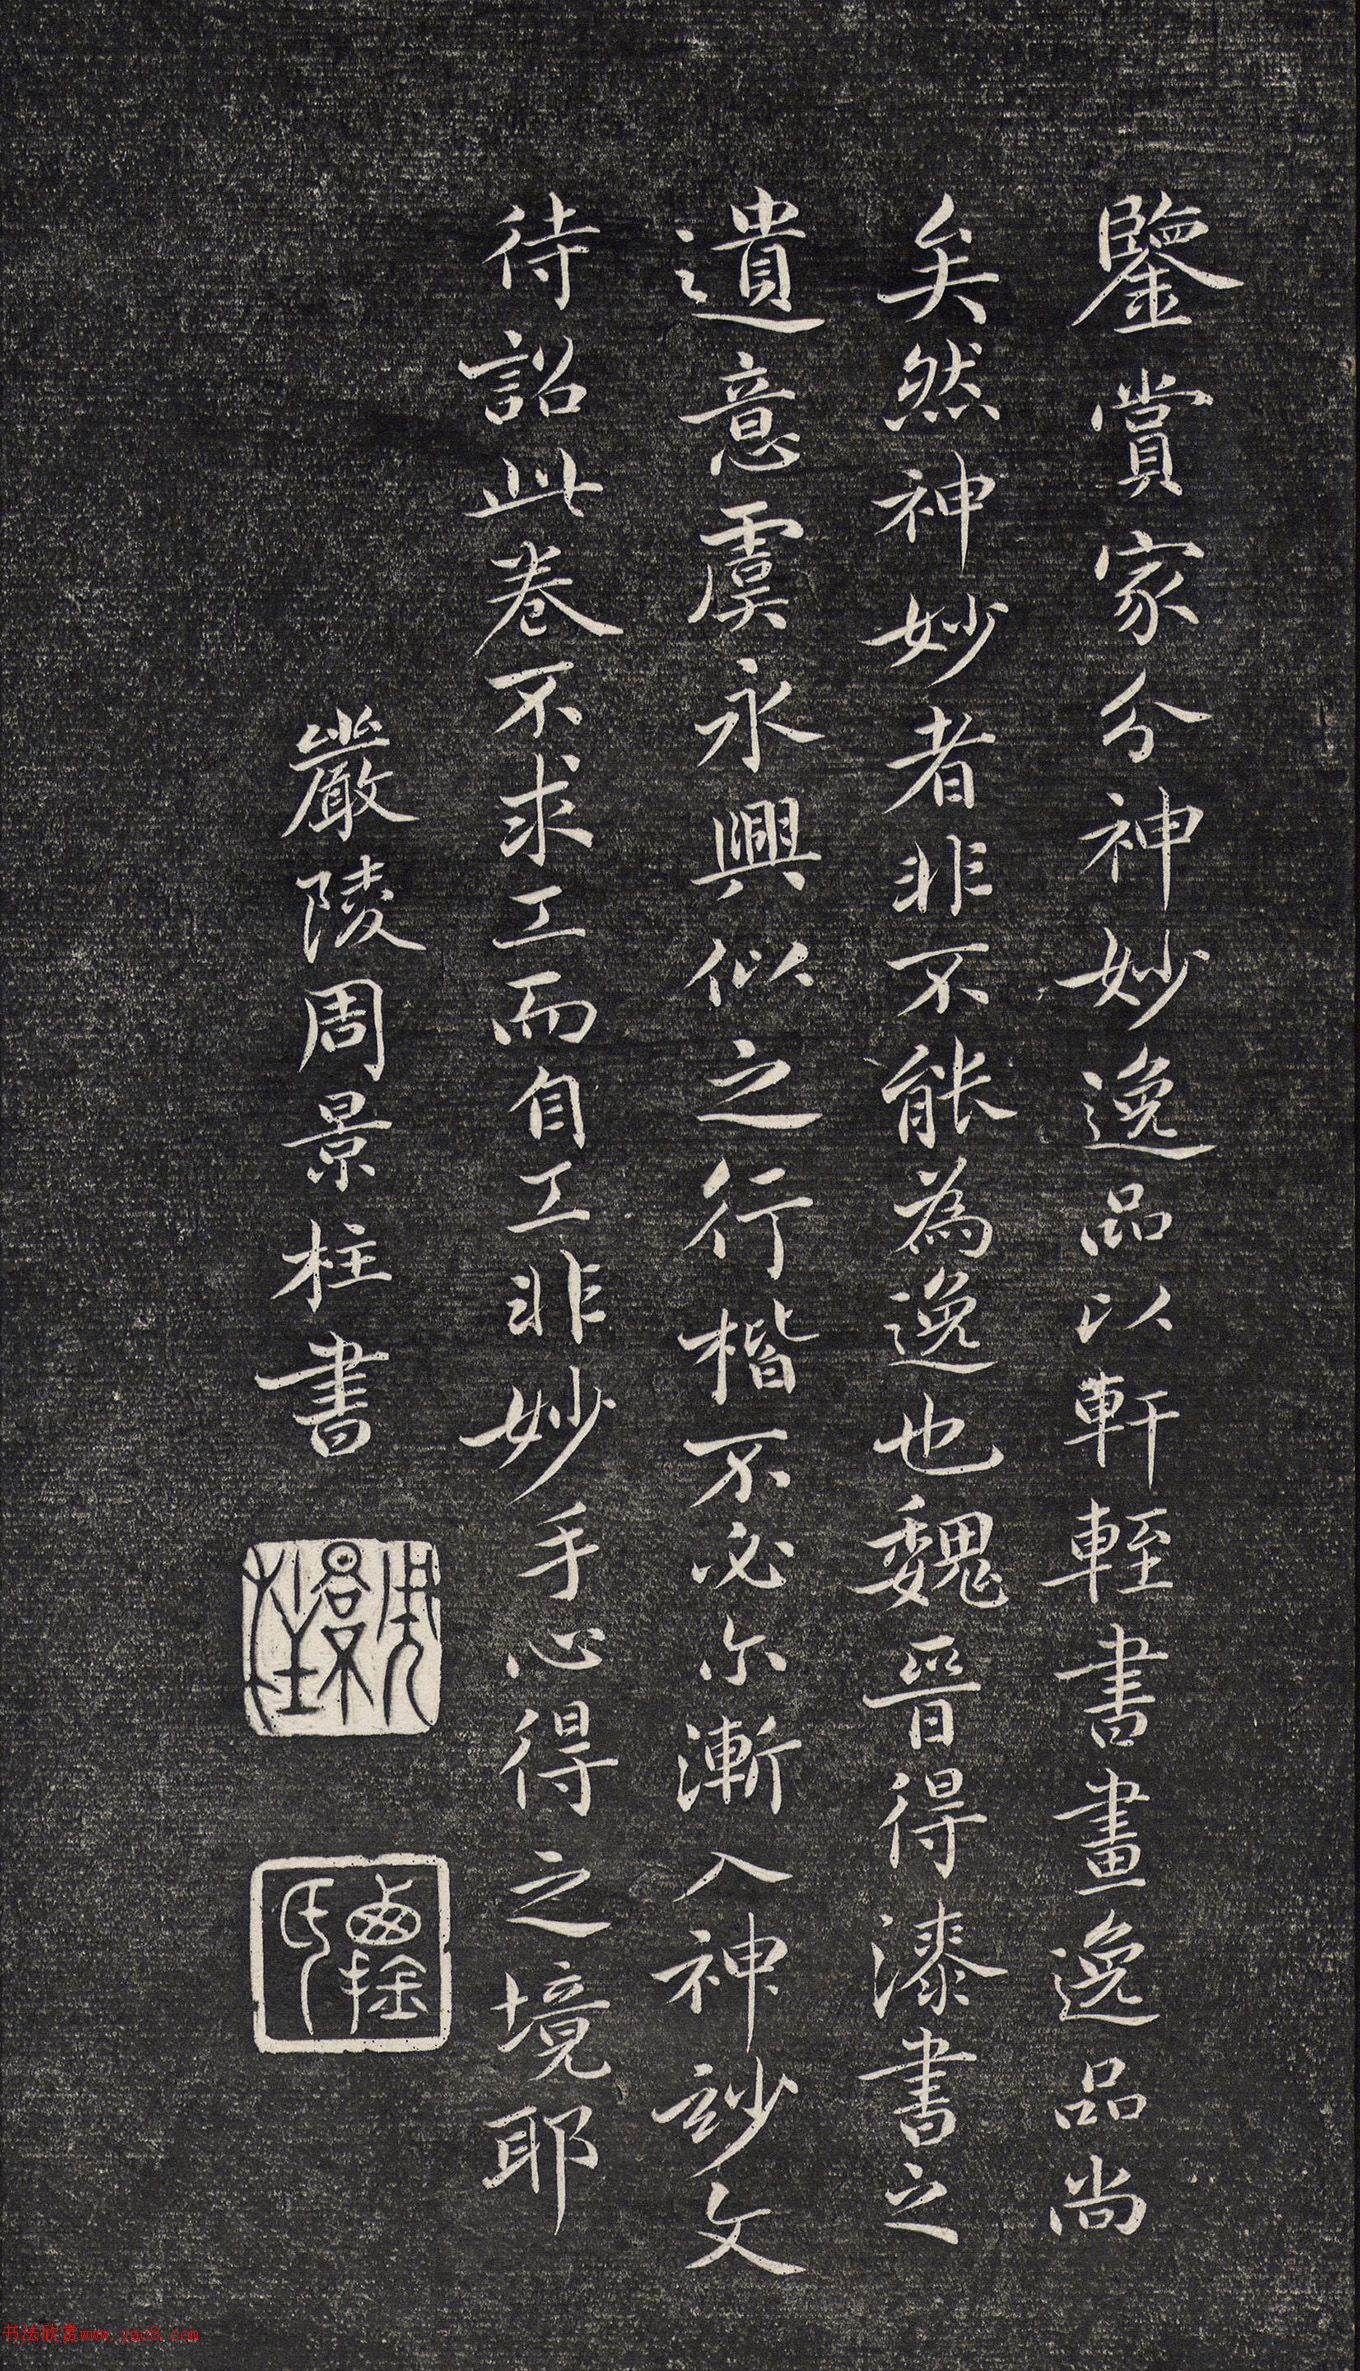 鑒賞家分神妙逸品以軒輊書畫逸品尚
矣然神妙者非不能為逸也魏晉得漆書之
遺意虞永興似之行楷不必尓漸入神玅文
待詔此卷不求工而自工非妙手心得之境耶
巖陵周景柱書
周景柱
氏
书法欣赏www.yac8.com